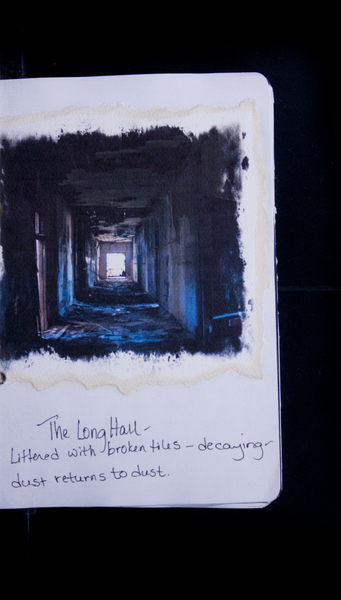 The Long Hall-
Littered with broken tiles - decaying-
dust returns to dust.